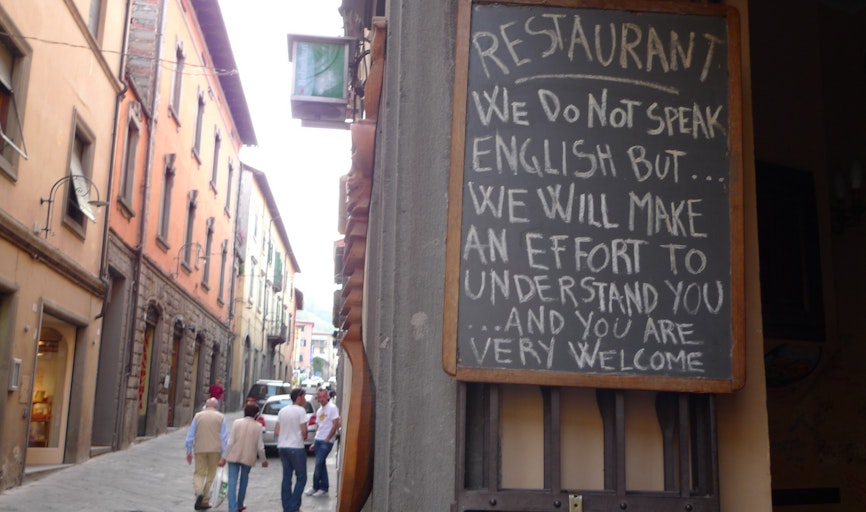 RESTAURANT
WE DO NOT SPEAK
ENGLISH BUT...
WE WILL MAKE
AN EFFORT TO
UNDERSTAND YOU
...AND YOU ARE
VERY WELCOME